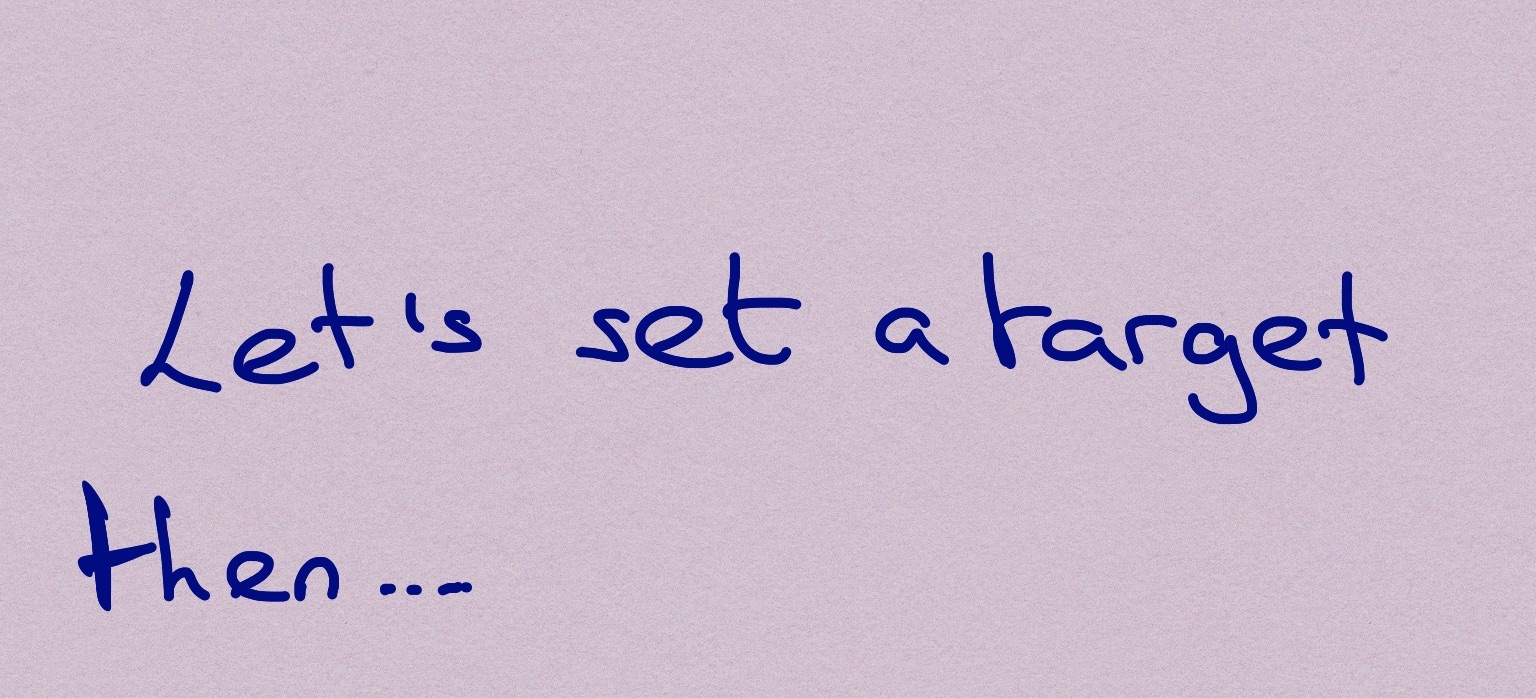 Let's set a target
then...